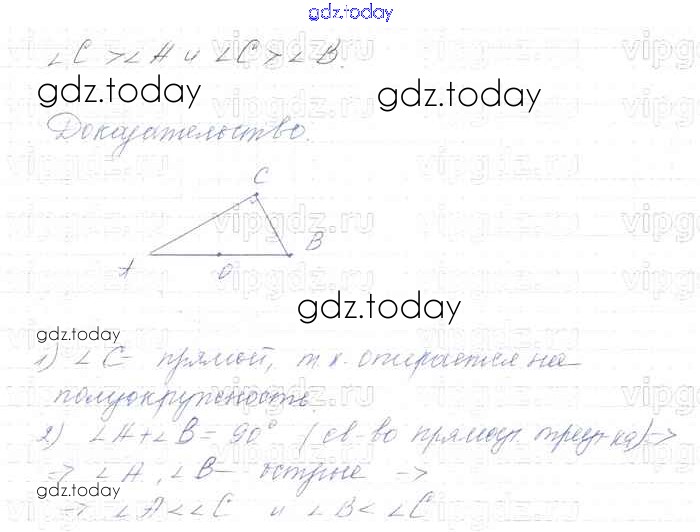 gdz.today
∠C > ∠A и ∠C > ∠B.
gdz.today gdz.today
Доказательство.
C
A O B
gdz.today
gdz.today
1) ∠C - прямой, т.к. опирается на
полуокружность.
2) ∠A + ∠B = 90° (св-во прямоуг. треуг-ка) →
→ ∠A, ∠B - острые →
gdz.today
→ ∠A < ∠C и ∠B < ∠C
vipgdz.ru vipgdz.ru